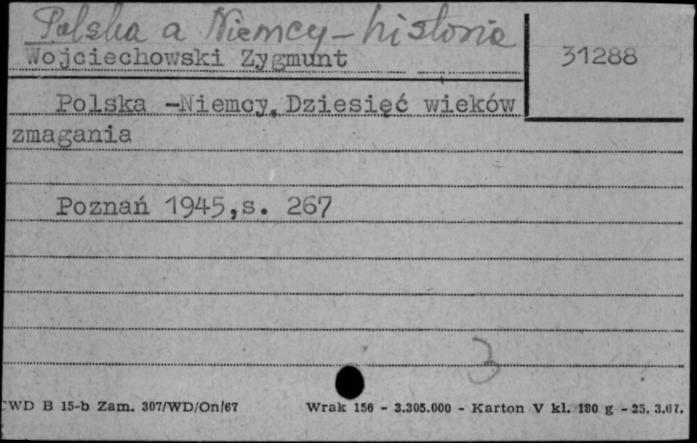 Polska a Niemcy - historia
Wojciechowski Zygmunt
31288
Polska -Niemcy. Dziesięć wieków
zmagania
Poznań 1945,s. 267
3
CWD B 15-b Zam. 307/WD/On/67
Wrak 156 - 3.305.000 - Karton V kl. 180 g - 25. 3.67.